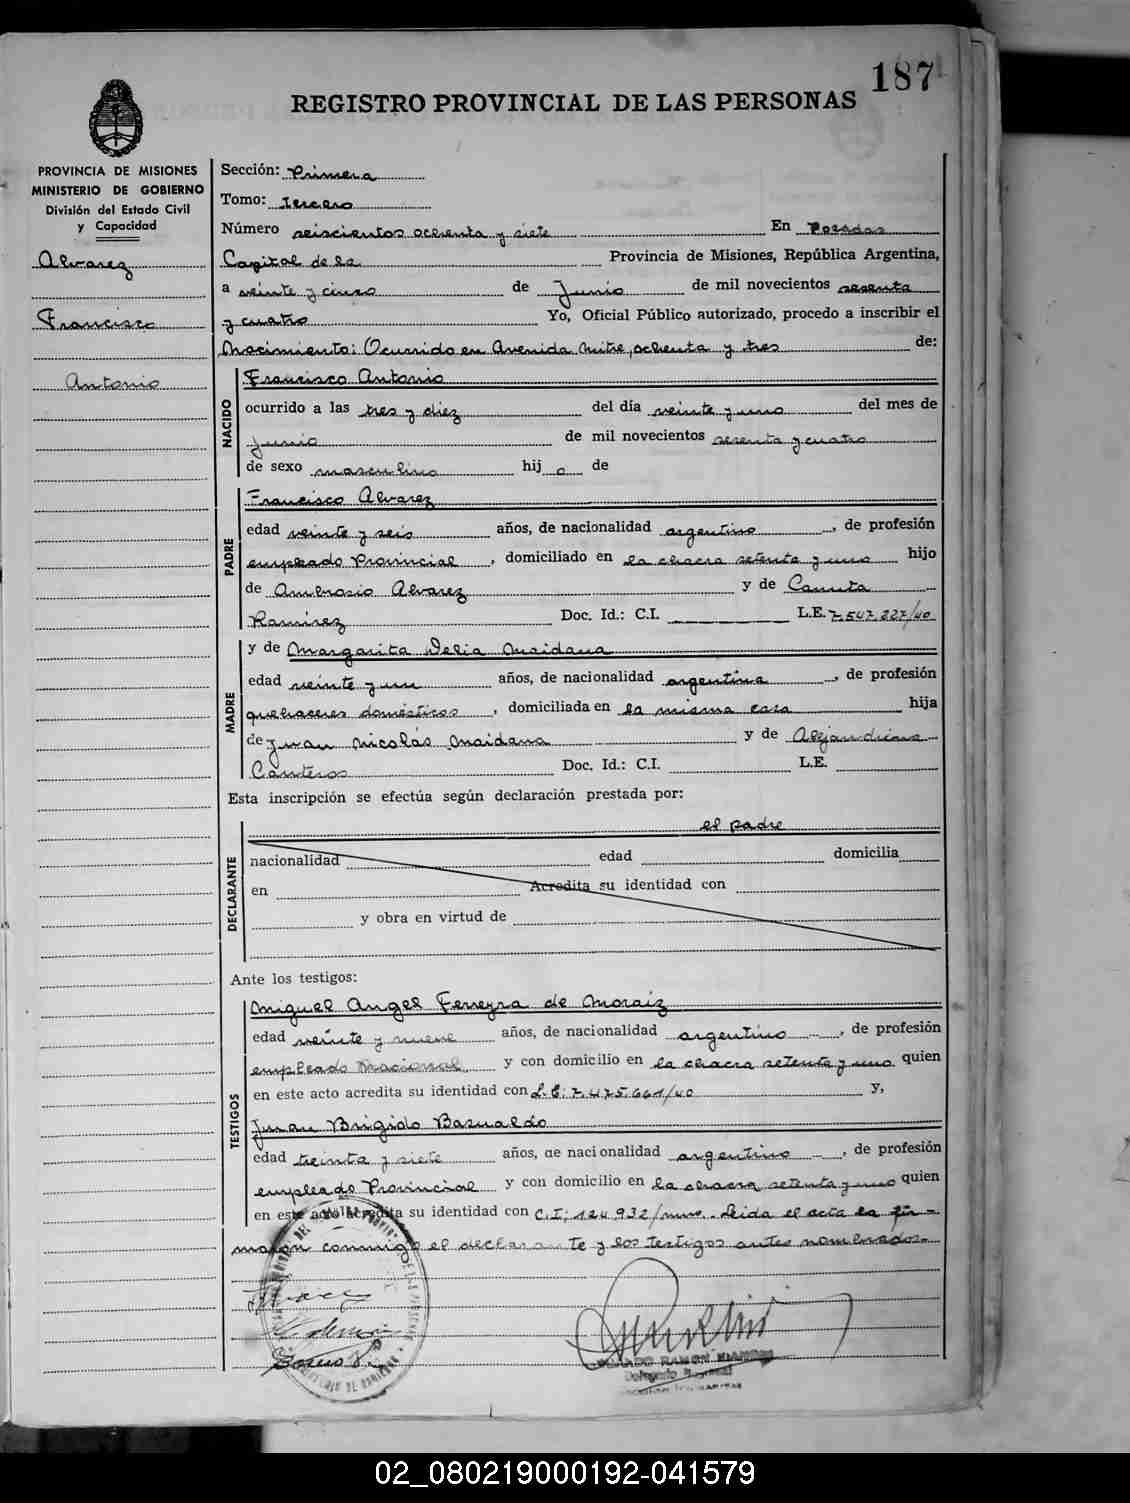 187
REGISTRO PROVINCIAL DE LAS PERSONAS
PROVINCIA DE MISIONES
MINISTERIO DE GOBIERNO
División del Estado Civil
y Capacidad
Alvarez
Francisco
Antonio
Sección: Primera
Tomo: Tercero
Número seiscientos ochenta y siete En Posadas
Capital de la Provincia de Misiones, República Argentina,
a veinte y cinco de Junio de mil novecientos sesenta
y cuatro Yo, Oficial Público autorizado, procedo a inscribir el
Nacimiento: Ocurrido en Avenida Mitre, ochenta y tres de:
NACIDO
Francisco Antonio
ocurrido a las tres y diez del día veinte y uno del mes de
Junio de mil novecientos sesenta y cuatro
de sexo masculino hij o de
PADRE
Francisco Alvarez
edad veinte y seis años, de nacionalidad argentino, de profesión
empleado Provincial, domiciliado en la chacra setenta y uno hijo
de Ambrosio Alvarez y de Canuta
Ramirez Doc. Id.: C.I. L.E. 7.547.227/40
MADRE
y de Margarita Delia Maidana
edad veinte y un años, de nacionalidad argentina, de profesión
quehaceres domésticos, domiciliada en la misma casa hija
de Juan Nicolás Maidana y de Alejandrina
Canteros Doc. Id.: C.I. L.E.
Esta inscripción se efectúa según declaración prestada por:
DECLARANTE
el padre
nacionalidad edad domicilia
en Acredita su identidad con
y obra en virtud de
Ante los testigos:
TESTIGOS
Miguel Angel Ferreyra de Moraiz
edad veinte y nueve años, de nacionalidad argentino, de profesión
empleado Nacional, y con domicilio en la chacra setenta y uno quien
en este acto acredita su identidad con L.E: 7.475.661/40 y,
Juan Brigido Basualdo
edad treinta y siete años, de nacionalidad argentino, de profesión
empleado Provincial y con domicilio en la chacra setenta y uno quien
en este acto acredita su identidad con C.I; 124.932/mnes. Leida el acta la fir-
maron conmigo el declarante y los testigos antes nombrados.-
RAMON
Delegado
02_080219000192-041579